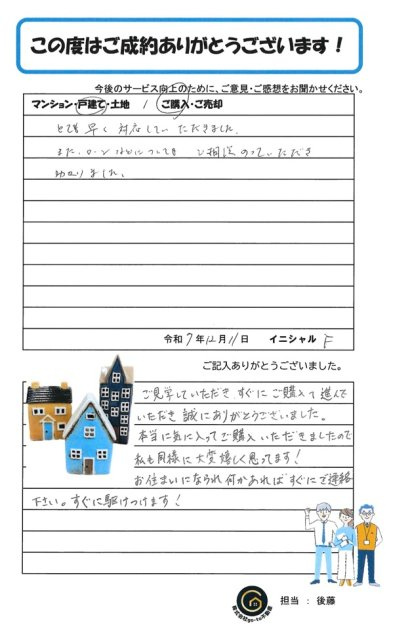 この度はご成約ありがとうございます！
今後のサービス向上のために、ご意見・ご感想をお聞かせください。
マンション・戸建て・土地　/　ご購入・ご売却
とても早く対応していただきました。
また、ローンなどについても ご相談のっていただき
助かりました。
令和7年12月11日　イニシャル　F
ご記入ありがとうございました。
ご見学していただき、すぐにご購入て進んで
いただき誠にありがとうございました。
本当に気に入ってご購入いただきましたので
私も同様に大変嬉しく思ってます！
お住まいになられ何かあればすぐにご連絡
下さい。すぐに駆けつけます！
担当　：　後藤